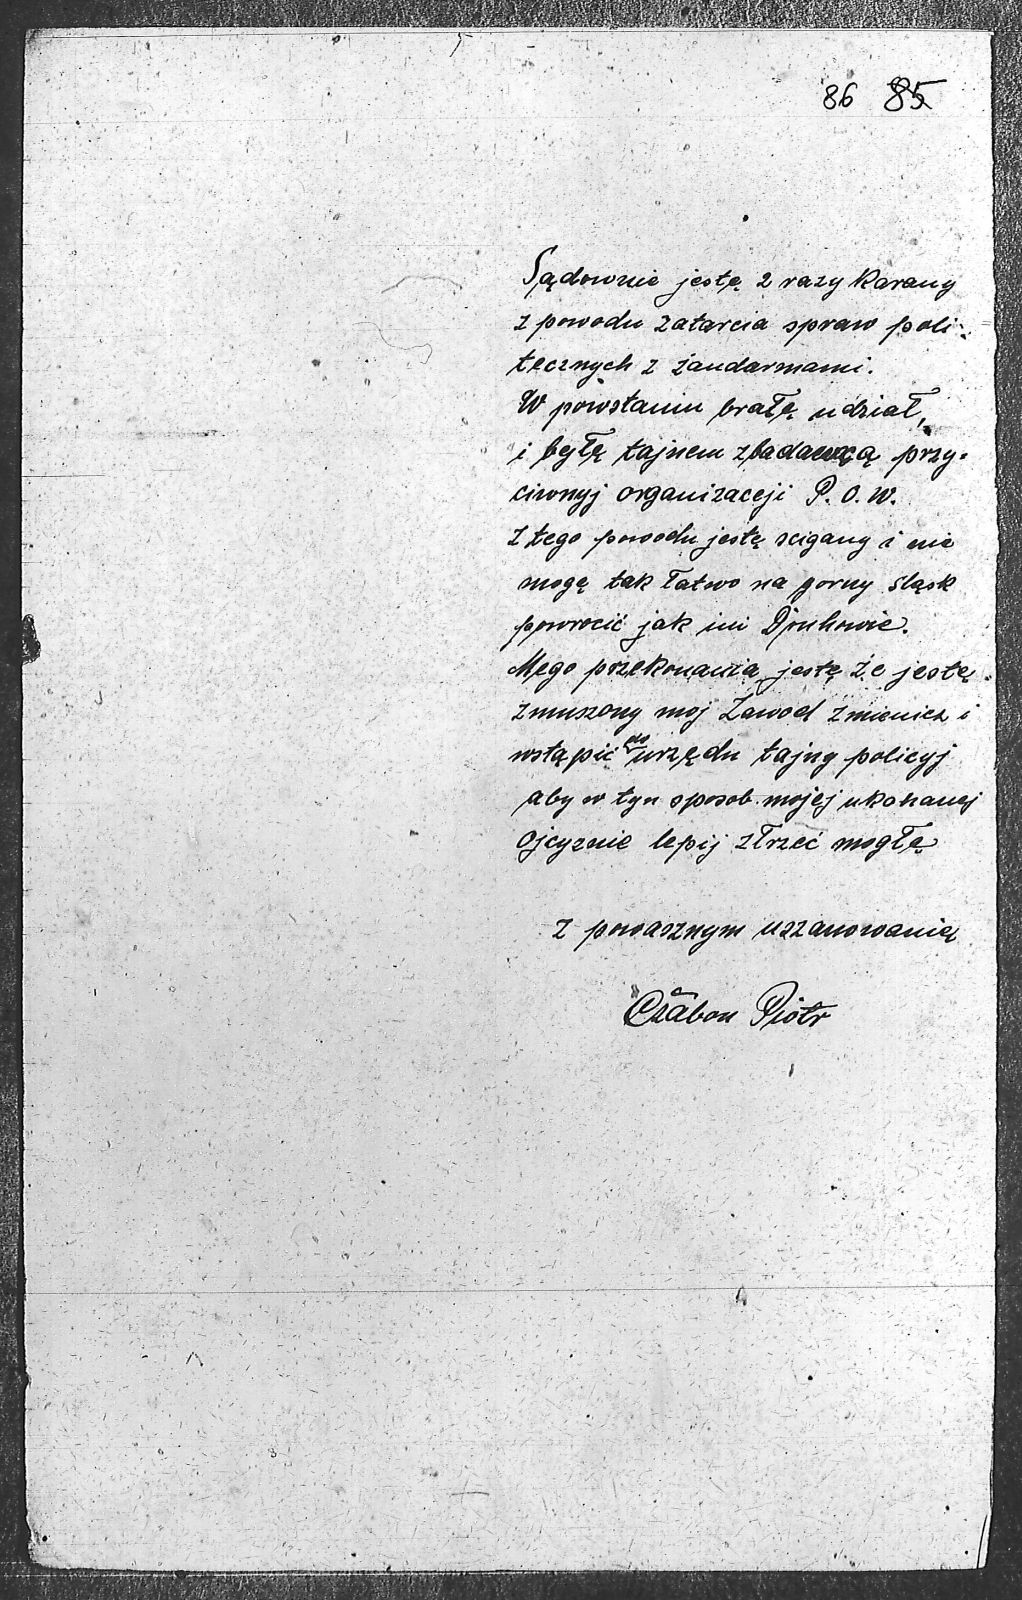 86 85
Sądownie jestę 2 razy karany
z powodu zatarcia spraw poli-
tecznych z żandarmami.
W powstaniu brałę udział,
i byłę tajnem zbadawcą przy-
ciwnyj organizaceji P. O. W.
Z tego powodu jestę scigany i nie
mogę tak łatwo na gorny śląsk
powrocić jak ini Druhowie.
Mego przekonania jestę że jestę
zmuszony moj Zawod zmienicz i
wstąpić do urzędu tajny policyj
aby w tyn sposob mojej ukohanej
Ojcyznie lepij złrzeć mogłę
Z powasznym uszanowanię
Czabon Piotr